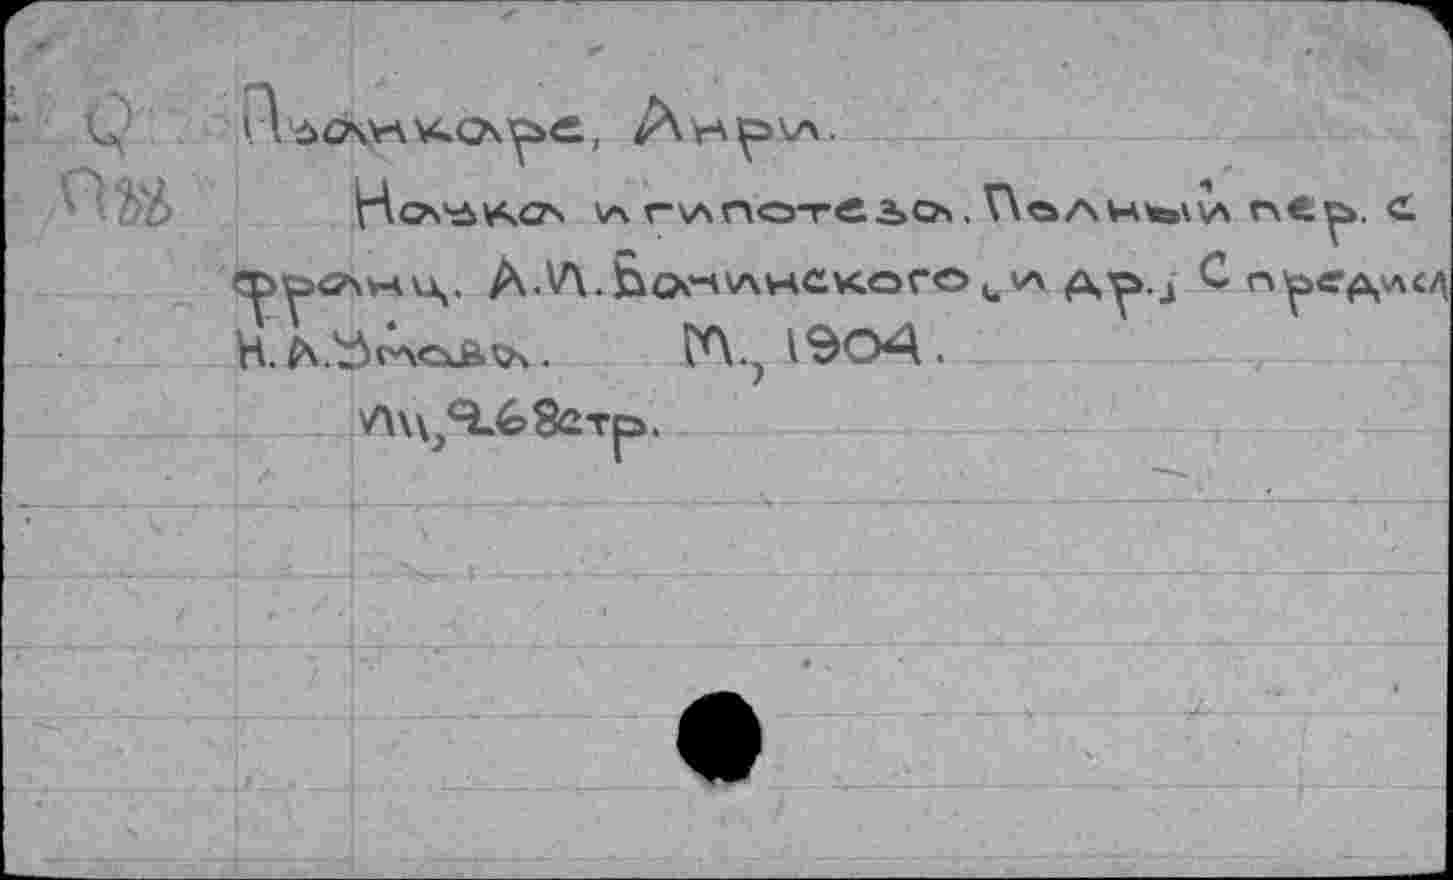 Q Пуанкаре, Анри.
Наука и гипотеза. Полный пер. с
франц. А.И.Бачинского и др.; С предисл
Н.А.Умова. М., 1904.
268стр.